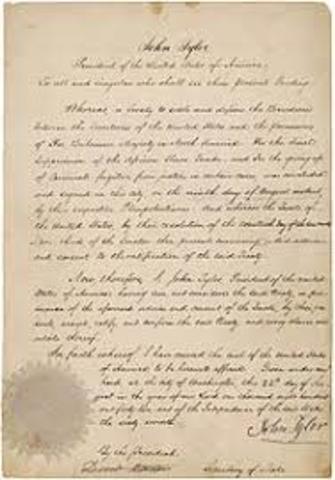 John Tyler
President of the United States of America,
To all and singular who shall see these Presents Greeting
Whereas, a treaty to settle and define the Boundaries
between the territories of the United States and the possessions
of Her Britannic Majesty in North America: For the final
Suppression of the African Slave Trade: and For the giving up
of Criminals fugitive from justice in certain cases, was concluded
and signed in this city on the ninth day of August
by their respective Plenipotentiaries: And whereas the Senate of
the United States, by their resolution of the
two thirds of the Senators then present concurring, did advise
and consent to the ratification of the said Treaty.
Now therefore, I, John Tyler, President of the United
States of America, having seen and considered the said Treaty, do
of the aforesaid advice and consent of the Senate, by these
accept, ratify and confirm the said Treaty and every clause and
article thereof.
In faith whereof, I have caused the seal of the United States
of America to be hereunto affixed. Given under my
hand at the city of Washington, the 22d day of
in the year of our Lord one thousand eight hundred
and forty two and of the Independence of the United States
the sixty seventh.
John Tyler
By the President
Secretary of State